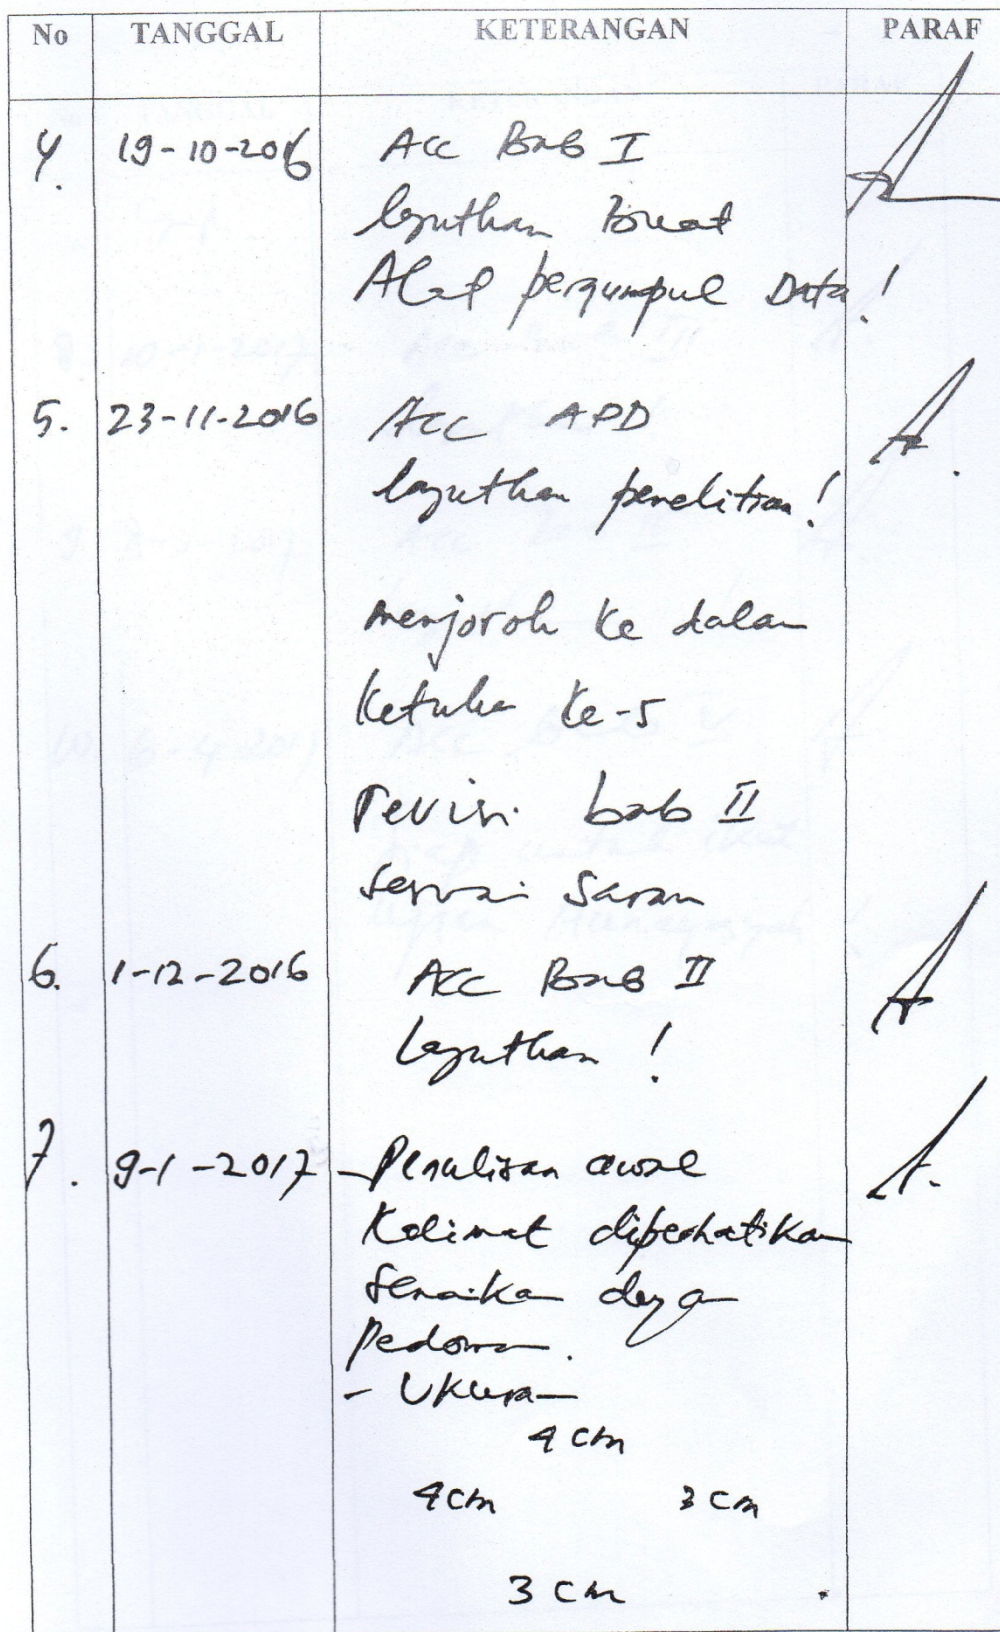 No TANGGAL KETERANGAN PARAF
4. 19-10-2016 Acc Bab I
lanjutkan Buat
Alat pengumpul Data!
5. 23-11-2016 Acc APD
lanjutkan penelitian!
menjorok ke dalam
Ketukan ke-5
revisi bab II
sesuai saran
6. 1-12-2016 Acc Bab II
Lanjutkan!
7. 9-1-2017 - Penulisan awal
Kalimat diperhatikan
sesuaikan dengan
Pedoman.
- Ukuran
4 cm
4 cm 3 cm
3 cm